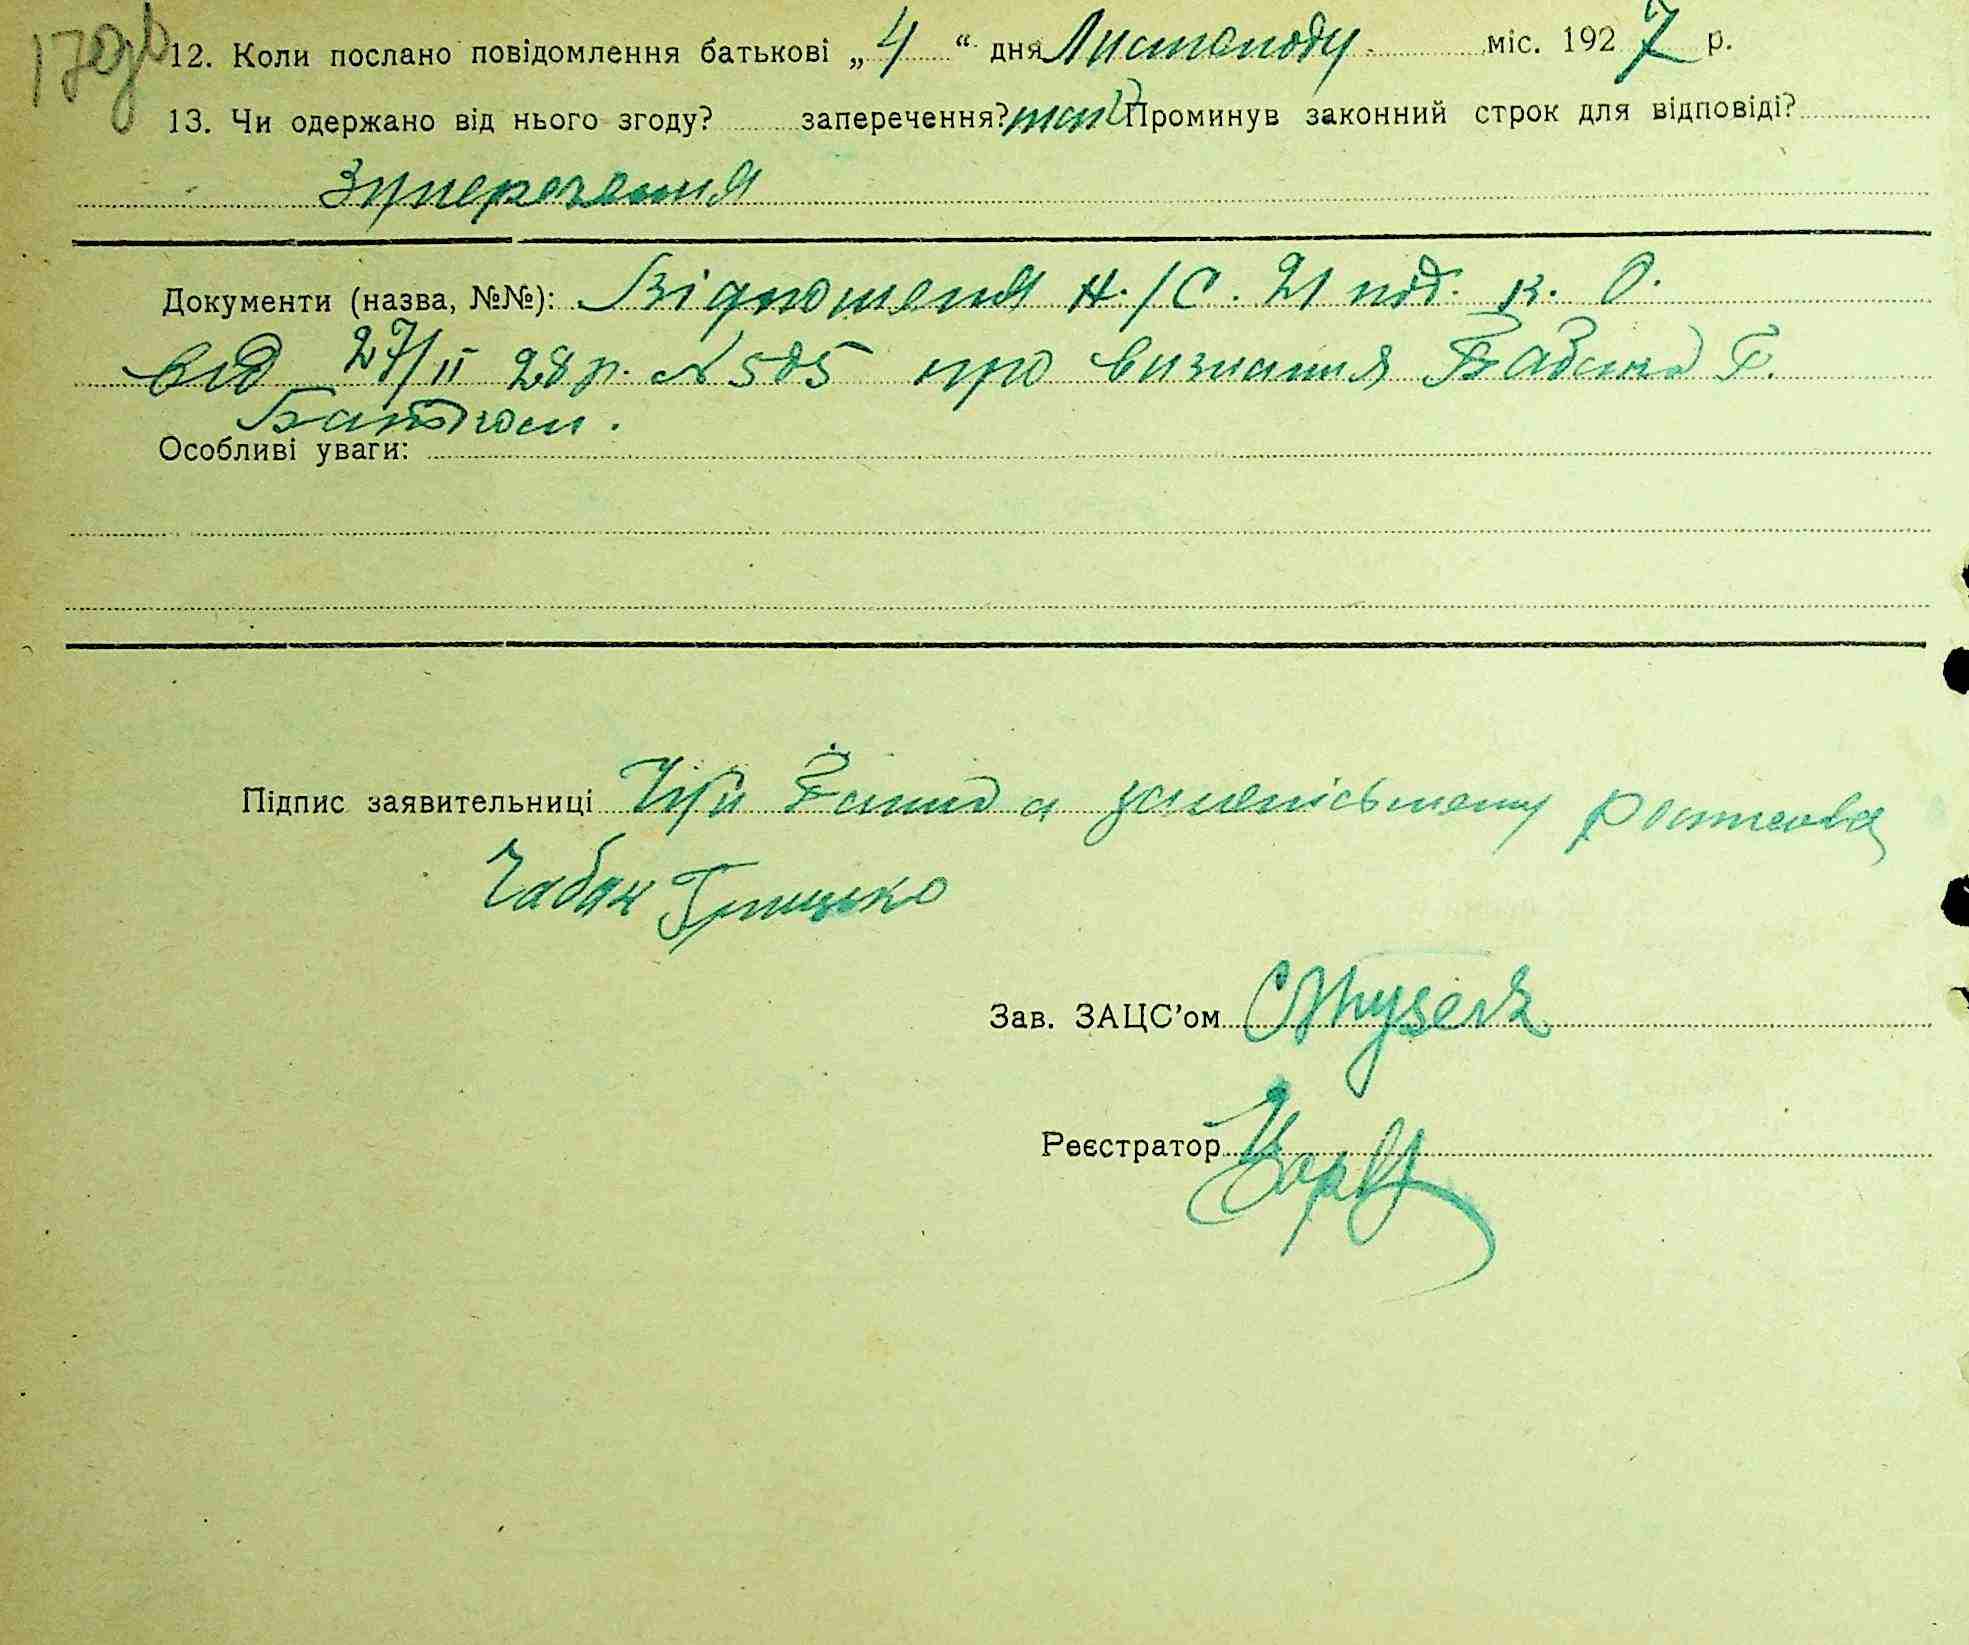 12. Коли послано повідомлення батькові „4“ дня Листопаду міс. 1927 р.
13. Чи одержано від нього згоду? заперечення? так Проминув законний строк для відповіді?
Зуперечення
Документи (назва, №№): Відношення Н./С. 21 под. к. О.
від 27/II 28 р. № 505 про визнання Г.
Батьком.
Особливі уваги:
Підпис заявительниці а
Чабан Грицько
Зав. ЗАЦС'ом
Реєстратор